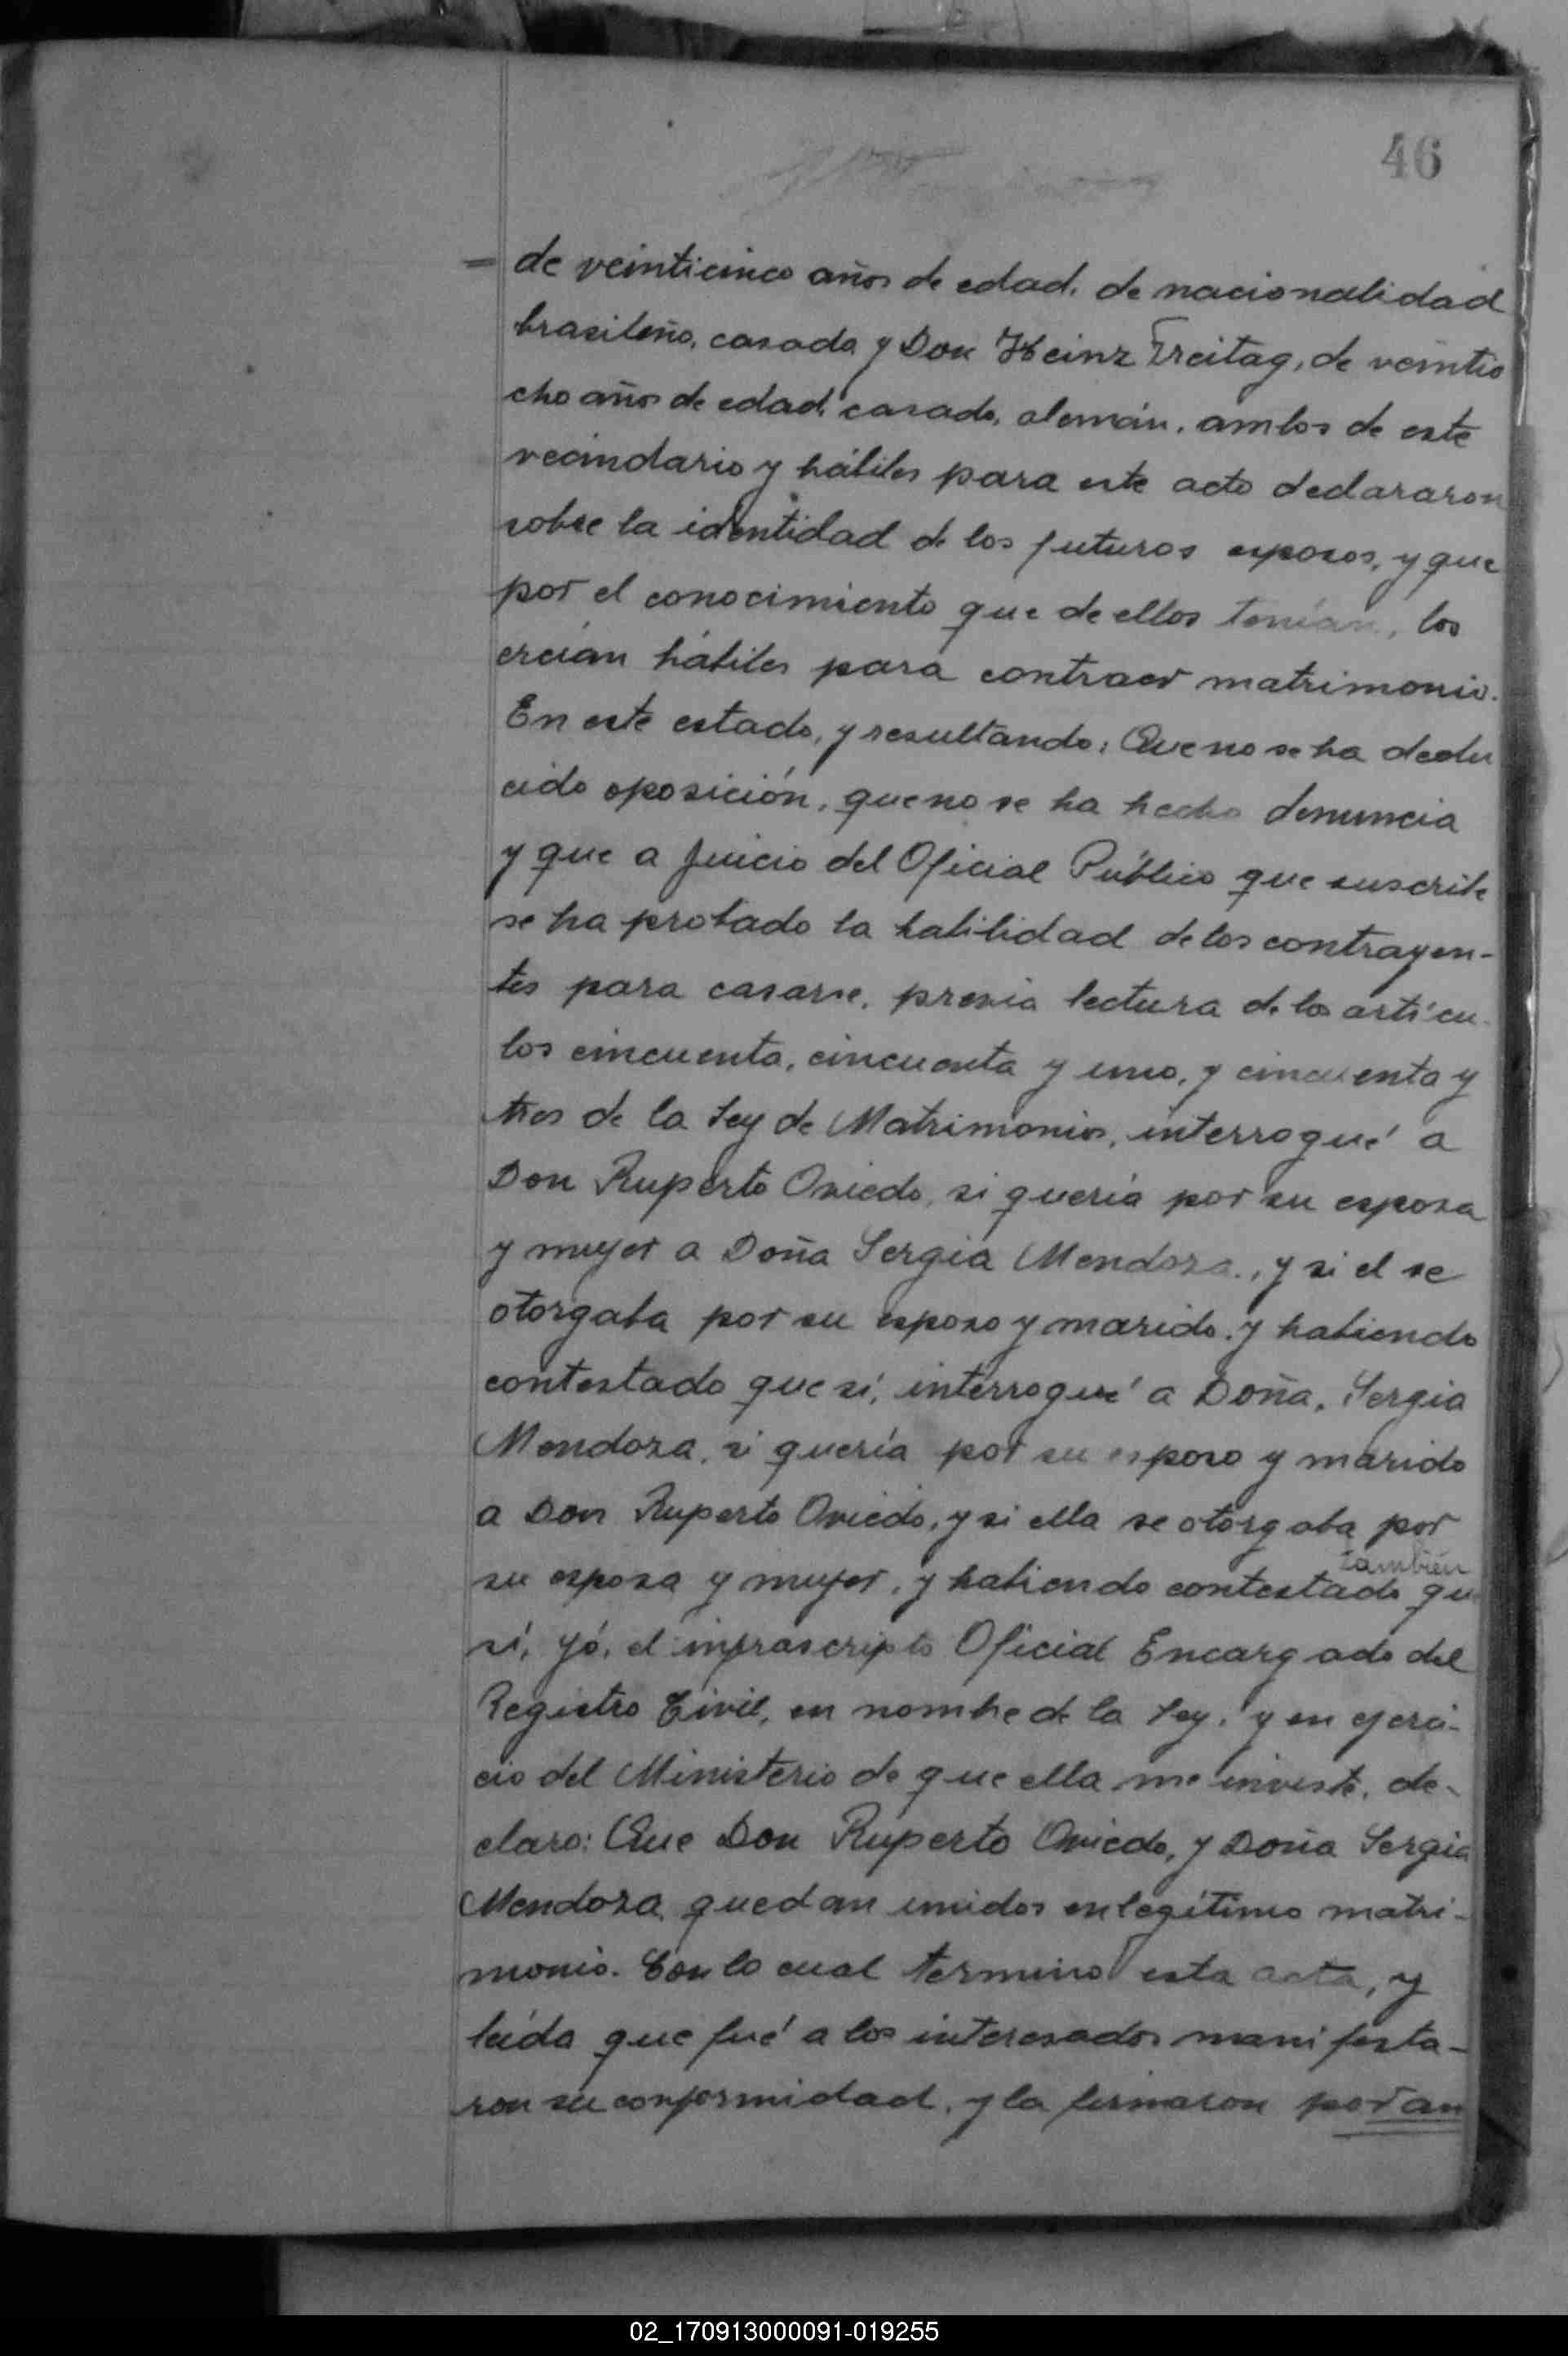 46
= de veinticinco años de edad, de nacionalidad
brasileña, casada y Don Heinz Freitag, de veintio
cho años de edad, casado, alemán, ambos de este
vecindario y hábiles para este acto declararon
sobre la identidad de los futuros esposos, y que
por el conocimiento que de ellos tenían, los
creían hábiles para contraer matrimonio.
En este estado, y resultando: Que no se ha dedu
cido oposición, que no se ha hecho denuncia
y que a juicio del Oficial Público que suscribe
se ha probado la habilidad de los contrayen-
tes para casarse, previa lectura de los artícu-
los cincuenta, cincuenta y uno, y cincuenta y
tres de la Ley de Matrimonio, interrogué a
Don Ruperto Oviedo, si quería por su esposa
y mujer a Doña Sergia Mendoza, y si el se
otorgaba por su esposo y marido, y habiendo
contestado que sí, interrogué a Doña, Sergia
Mendoza, si quería por su esposo y marido
a Don Ruperto Oviedo, y si ella se otorgaba por
también
su esposa y mujer, y habiendo contestado que
sí, yó, el infrascripto Oficial Encargado del
Registro Civil, en nombre de la Ley, y en ejerci-
cio del Ministerio de que ella me inviste, de-
claro: Que Don Ruperto Oviedo, y Doña Sergia
Mendoza, quedan unidos en legítimo matri-
monio. Con lo cual termino esta acta, y
leída que fué a los interesados manifesta-
ron su conformidad, y la firmaron por an
02_170913000091-019255